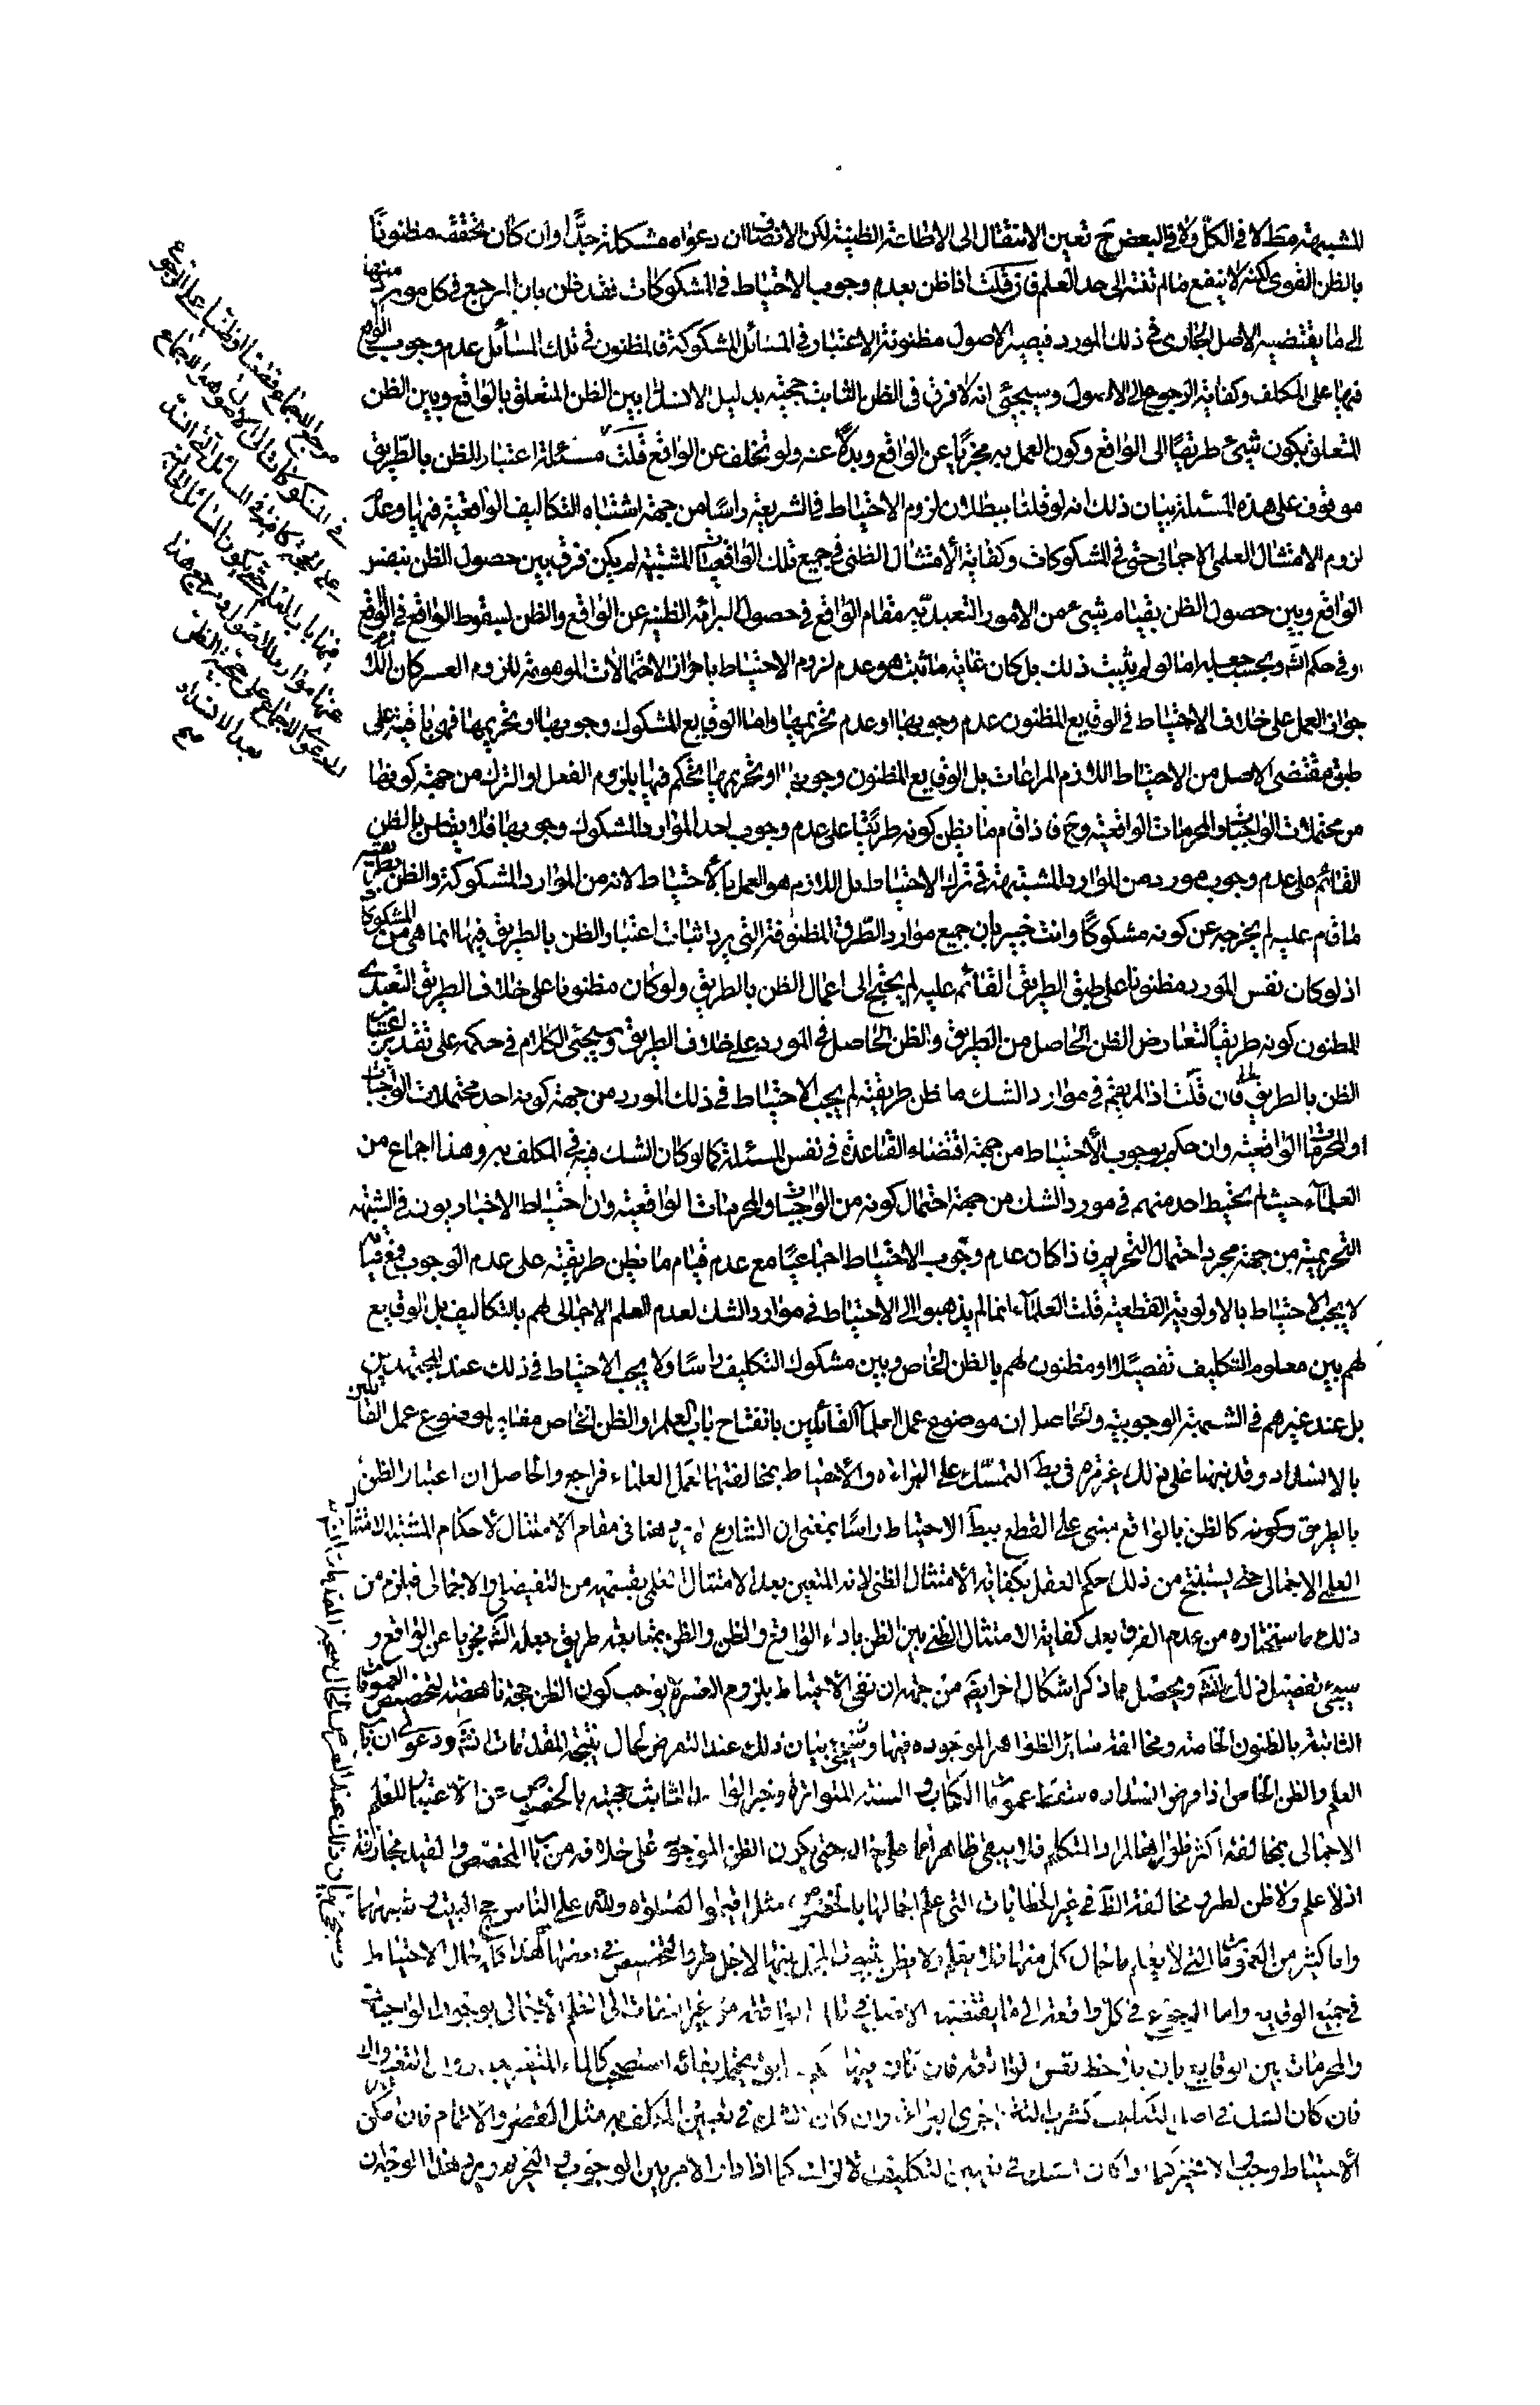 المشتبهة مط لا في الكل ولا في البعض ح تعين الانتقال الى الاطاعة الظنية لكن الانصاف ان دعواه مشكلة جدّا وان كان تحققه مظنونًا
بالظن القوى لكنه لا ينفع ما لم تنته الى حد العلم فان قلت اذا ظن بعدم وجوب الاحتياط في المشكوكات فقد ظن بان المرجع في كل مورد منها
الى ما يقتضيه الاصل الجارى في ذلك المورد فيصير الاصول مظنونة الاعتبار في المسائل المشكوكة فالمظنون في تلك المسائل عدم وجوب الواقع
فيها على المكلف وكفاية الرجوع الى الاصول وسيجئ انه لا فرق في الظن الثابت حجيته بدليل الانسداد بين الظن المتعلق بالواقع وبين الظن
المتعلق بكون شيئ طريقًا الى الواقع وكون العمل به مجزيًا عن الواقع وبدلًا عنه ولو تخلف عن الواقع قلت مسئلة اعتبار الظن بالطريق
موقوف على هذه المسئلة بيان ذلك انه لو قلنا ببطلان لزوم الاحتياط في الشريعة راسًا من جهة اشتباه التكاليف الواقعية فيها وعدم
لزوم الامتثال العلمى الاجمالى حتى في المشكوكات وكفاية الامتثال الظنى في جميع تلك الواقعيات المشتبهة لم يكن فرق بين حصول الظن بنفس
الواقع وبين حصول الظن بقيام شيئ من الامور التعبدية مقام الواقع في حصول البرائة الظنية عن الواقع والظن لسقوط الواقع في الواقع
او في حكم الله وبحسب جعله اما لو لم يثبت ذلك بل كان غاية ما ثبت هو عدم لزوم الاحتياط باحراز الاحتمالات الموهومة للزوم العسر كان اللازم
جواز العمل على خلاف الاحتياط في الوقايع المظنون عدم وجوبها او عدم تحريمها واما الوقايع المشكوك وجوبها او تحريمها فهى باقية على
طبق مقتضى الاصل من الاحتياط اللازم المراعات بل الوقايع المظنون وجوبها او تحريمها يحكم فيها بلزوم الفعل او الترك من جهة كونها
من محتملات الواجبات والمحرمات الواقعية وح فاذا قام ما يظن كونه طريقًا على عدم وجوب احد الموارد المشكوك وجوبها فلا يقاس بالظن
القائم على عدم وجوب مورد من الموارد المشتبهة في ترك الاحتياط بل اللازم هو العمل بالاحتياط لانه من الموارد المشكوكة والظن بطريقية
ما قام عليه لم يخرجه عن كونه مشكوكًا وانت خبير بان جميع موارد الطرق المظنونة التى يراد اثبات اعتبار الظن بالطريق فيها انما هى من المشكوكات
اذ لو كان نفس المورد مظنونا على طبق الطريق القائم عليه لم يحتج الى اعمال الظن بالطريق ولو كان مظنونا على خلاف الطريق التعبدى
المظنون كونه طريقًا لتعارض الظن الحاصل من الطريق والظن الحاصل في المورد على خلاف الطريق وسيجئى الكلام في حكمه على تقدير اعتبار
الظن بالطريق فان قلت اذا لم يقم في موارد الشك ما ظن طريقيته لم يجب الاحتياط في ذلك المورد من جهة كونه احد محتملات الواجبات
او المحرمات الواقعية وان حكم بوجوب الاحتياط من جهة اقتضاء القاعدة في نفس المسئلة كما لو كان الشك فيه في المكلف به وهذا اجماع من
العلماء حيث لم يحتط احد منهم في مورد الشك من جهة احتمال كونه من الواجبات والمحرمات الواقعية وان احتاط الاخباريون في الشبهة
التحريمية من جهة مجرد احتمال التحريم فاذا كان عدم وجوب الاحتياط اجماعيًا مع عدم قيام ما يظن طريقيته على عدم الوجوب فمع قيامه
لا يجب الاحتياط بالاولوية القطعية قلت العلماء انما لم يذهبوا الى الاحتياط في موارد الشك لعدم العلم الاجمالى لهم بالتكاليف بل الوقايع
لهم بين معلوم التكليف تفصيلًا او مظنون لهم بالظن الخاص وبين مشكوك التكليف راسًا ولا يجب الاحتياط في ذلك عند المجتهدين
بل عند غيرهم في الشبهة الوجوبية والحاصل ان موضوع عمل العلماء القائلين بانفتاح باب العلم او الظن الخاص مغاير لموضوع عمل القائلين
بالانسداد وقد نبهنا على ذلك غير مرة في بط التمسك على البراءة والاحتياط بمخالفتهما لعمل العلماء فراجع والحاصل ان اعتبار الظن
بالطريق وكونه كالظن بالواقع مبنى على القطع ببط الاحتياط راسًا بمعنى ان الشارع هنا في مقام الامتثال لاحكام المشتبهة الامتثال
العلمى الاجمالى حتى يستنتج من ذلك حكم العقل بكفاية الامتثال الظنى لانه المتعين بعد الامتثال العلمى بقسميه من التفصيلى والاجمالى فيلزم من
ذلك ما سنختاره من عدم الفرق بعد كفاية الامتثال الظنى بين الظن باداء الواقع والظن بمتابعة طريق جعله الشه مجزيا عن الواقع و
سيجئ تفصيل ذلك انشه ويحصل مما ذكر اشكال اخر ايضا من جهة ان نفى الاحتياط بلزوم العسر لا يوجب كون الظن حجة ناهضة لتخصيص العمومات
الثابتة بالظنون الخاصة ومخالفة سائر الظواهر الموجوده فيها وسيجئ بيان ذلك عند التعرض لحال نتيجة المقدمات انشه ودعوى ان باب
العلم والظن الخاص اذا فرض انسداده سقط عمومات الكتاب والسنة المتواترة وخبر الواحد الثابت حجيته بالخصوص عن الاعتبار للعلم
الاجمالى بمخالفة اكثر ظواهرها لمراد المتكلم فلا يبقى ظاهر منها على حاله حتى يكون الظن الموجود على خلافه من باب المخصص والمقيد مجازفة
اذ لا علم ولا ظن لطرو مخالفة الظ في غير الخطابات التى علم اجمالها بالخصوص مثل اقيموا الصلوة ولله على الناس حج البيت وشبههما
واما كثير من العمومات التى لا يعلم باجمال كل منها فلا يعلم ولا يظن بثبوت المجمل بينها لاجل طرو التخصيص في بعضها هذا كله حال الاحتياط
في جميع الوقايع واما الرجوع في كل واقعة الى ما يقتضيه الاصل في تلك الواقعة من غير التفات الى العلم الاجمالى بوجود الواجبات
والمحرمات بين الوقايع بان يلاحظ نفس الواقعة فان كان فيها حكم سابق يحتمل بقائه استصحب كالماء المتغير بعد زوال التغير والا
فان كان الشك في اصل التكليف كشرب التتن اجرى البراءة وان كان الشك في تعيين المكلف به مثل القصر والاتمام فان امكن
الاحتياط وجب والا تخير كما اذا كان الشك في تعيين التكليف الالزامى كما اذا دار الامر بين الوجوب والتحريم ويرد هذا الوجه ان
مرجع الاجماع قطعيا او ظنيا على الرجوع
في المشكوكات الى الاصول هو الاجماع
على الحجية كافية في المسائل التى انسد
فيها باب العلم حتى تكون المسائل الخالية
عنها موارد للاصول ومرجع هذا
الى دعوى الاجماع على حجية الظن
بعد الانسداد
صح
وسيجئ بيان ذلك عند التعرض لحال نتيجة المقدمات انشه